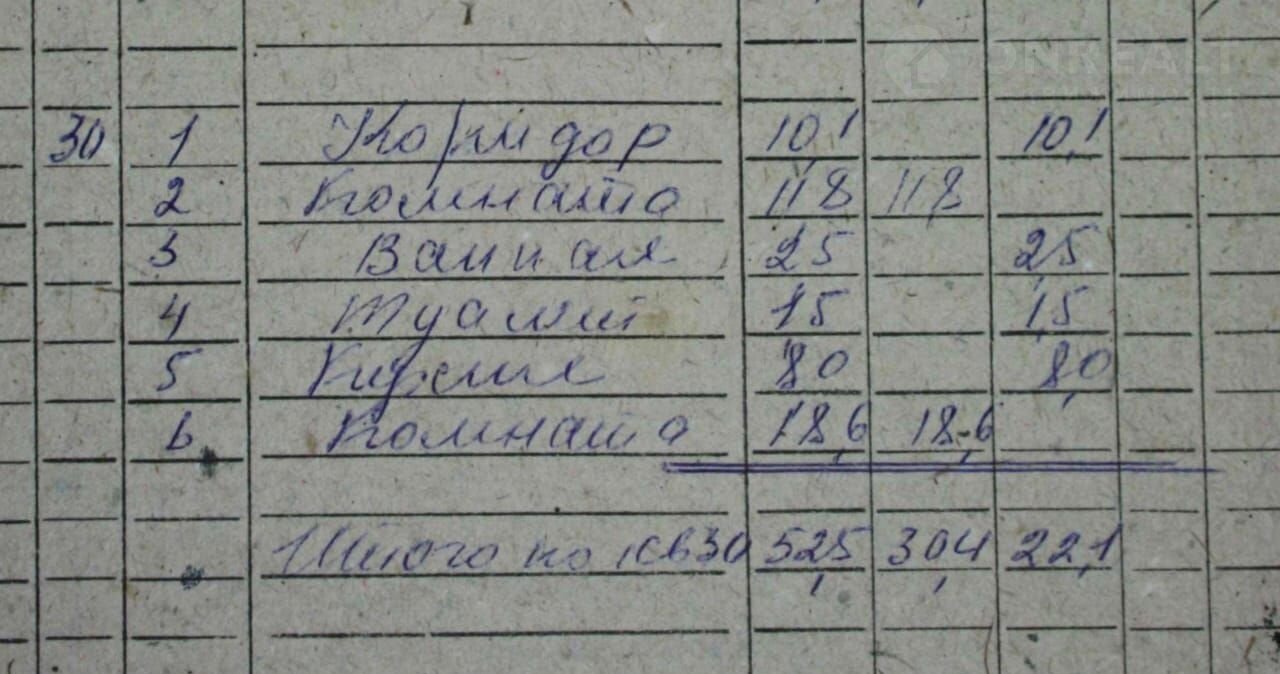 ONREALT
30 1 Коридор 10,1 10,1
2 Комната 11,8 11,8
3 Ванная 2,5 2,5
4 Туалет 1,5 1,5
5 Кухня 8,0 8,0
6 Комната 18,6 18,6
Итого по кв 30 52,5 30,4 22,1